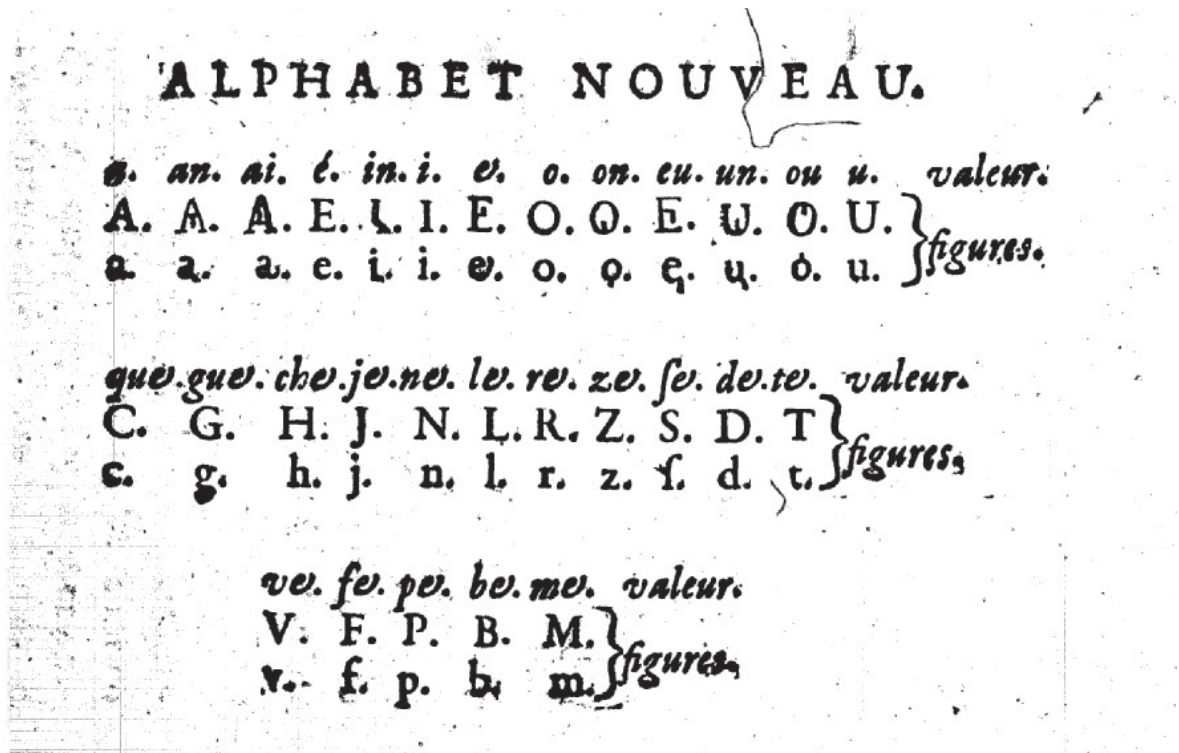 ALPHABET NOUVEAU.
a. an. ai. é. in. i. e. o. on. eu. un. ou u. valeur.
A. A. A. E. I. I. E. O. O. E. U. O. U.
figures.
a. a. a. e. i. i. e. o. o. ę. ų. ȯ. u.
que.gue. che.je.ne. le. re. ze. ſe. de.te. valeur.
C. G. H. J. N. L. R. Z. S. D. T
figures.
c. g. h. j. n. l. r. z. ſ. d. t.
ve. fe. pe. be. me. valeur.
V. F. P. B. M.
figures.
v. f. p. b. m.